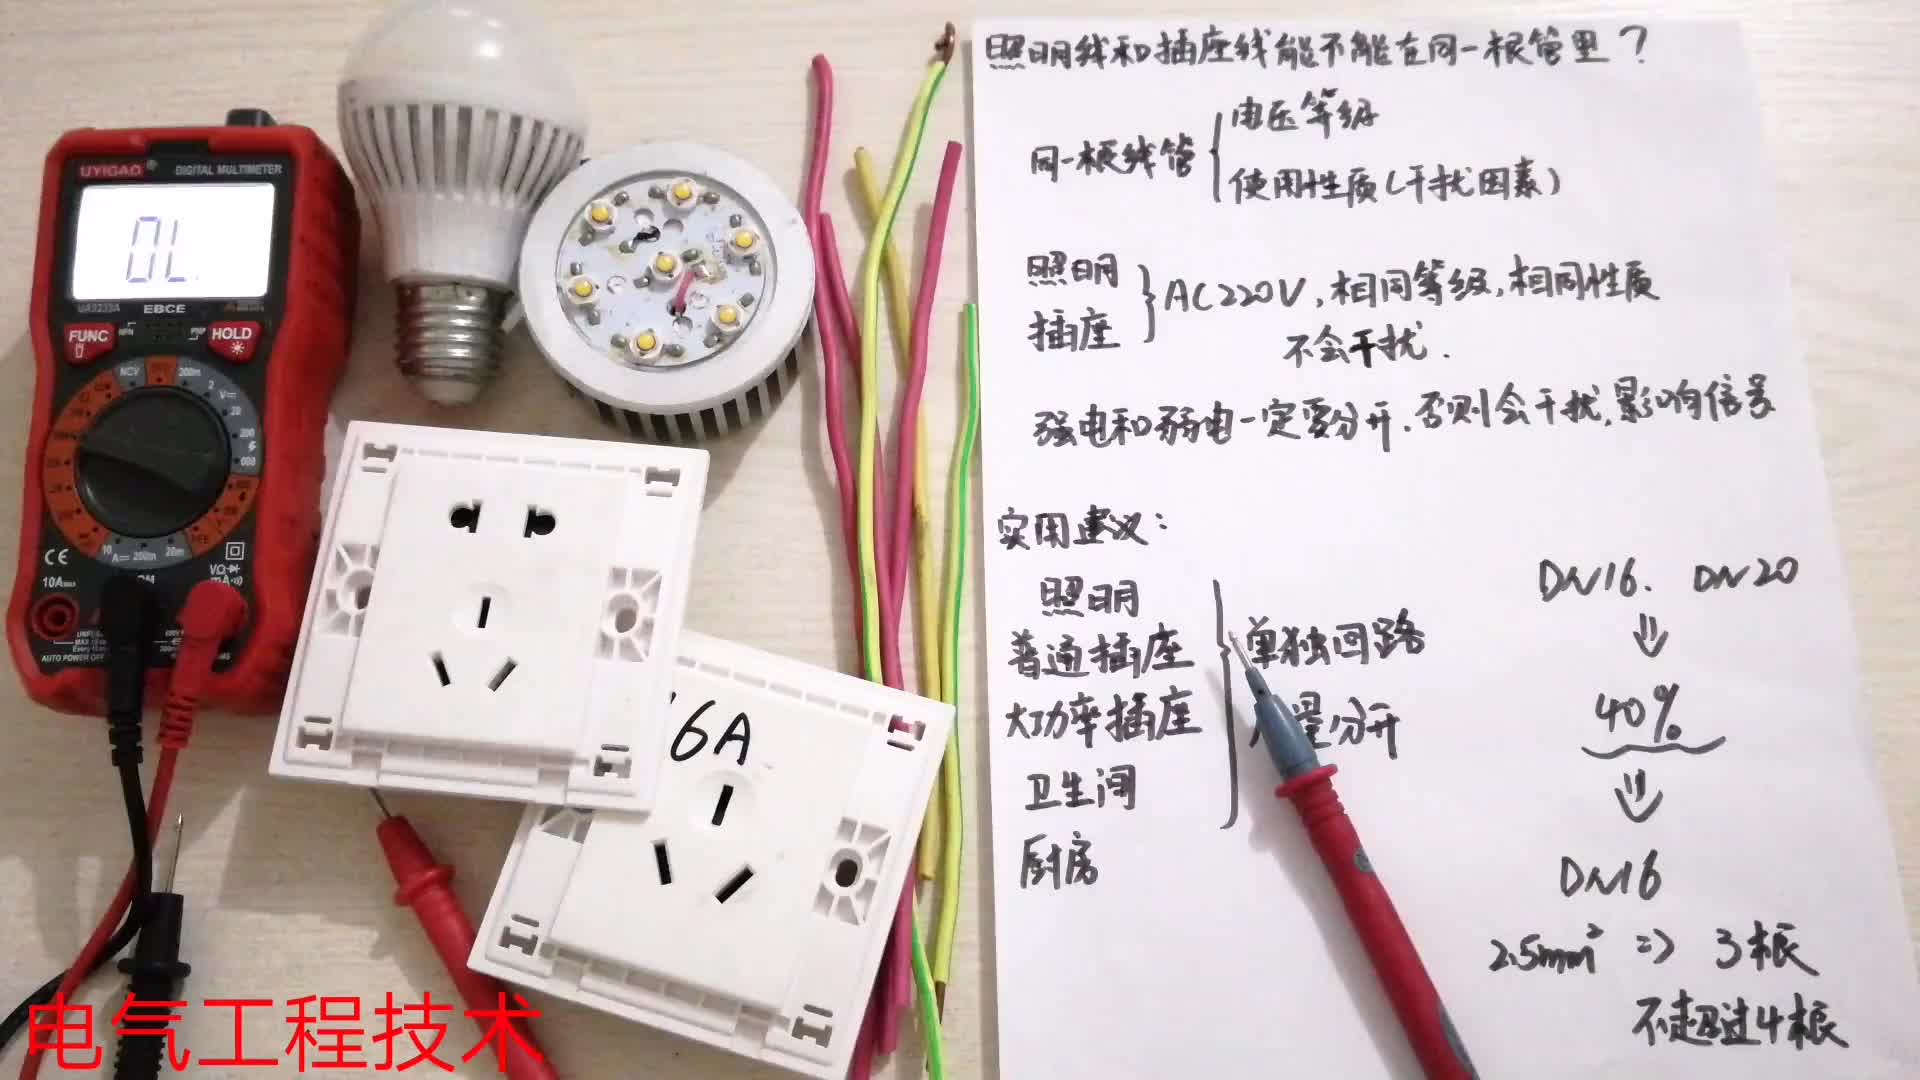 照明线和插座线能不能在同一根管里？
同一根线管
电压等级
使用性质(干扰因素)
照明
插座
AC220V,相同等级,相同性质
不会干扰.
强电和弱电一定要分开.否则会干扰,影响信号
实用建议:
照明
普通插座
大功率插座
卫生间
厨房
单独回路
量分开
DN16. DN20
40%
DN16
2.5mm² => 3根
不超过4根
16A
UYIGAO
DIGITAL MULTIMETER
0L
UA9233A
EBCE
FUNC
HOLD
NCV
200m
2
V
20
200
600
10
A
200m
20m
hFE
CE
10A MAX
VΩ
mA
AUTO POWER OFF
电气工程技术